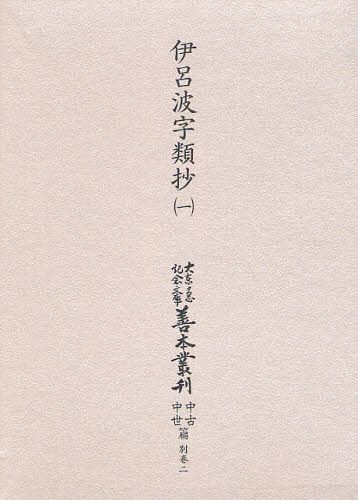 伊呂波字類抄(一)
大東急
記念文庫
善本叢刊
中古
中世
篇 別巻二